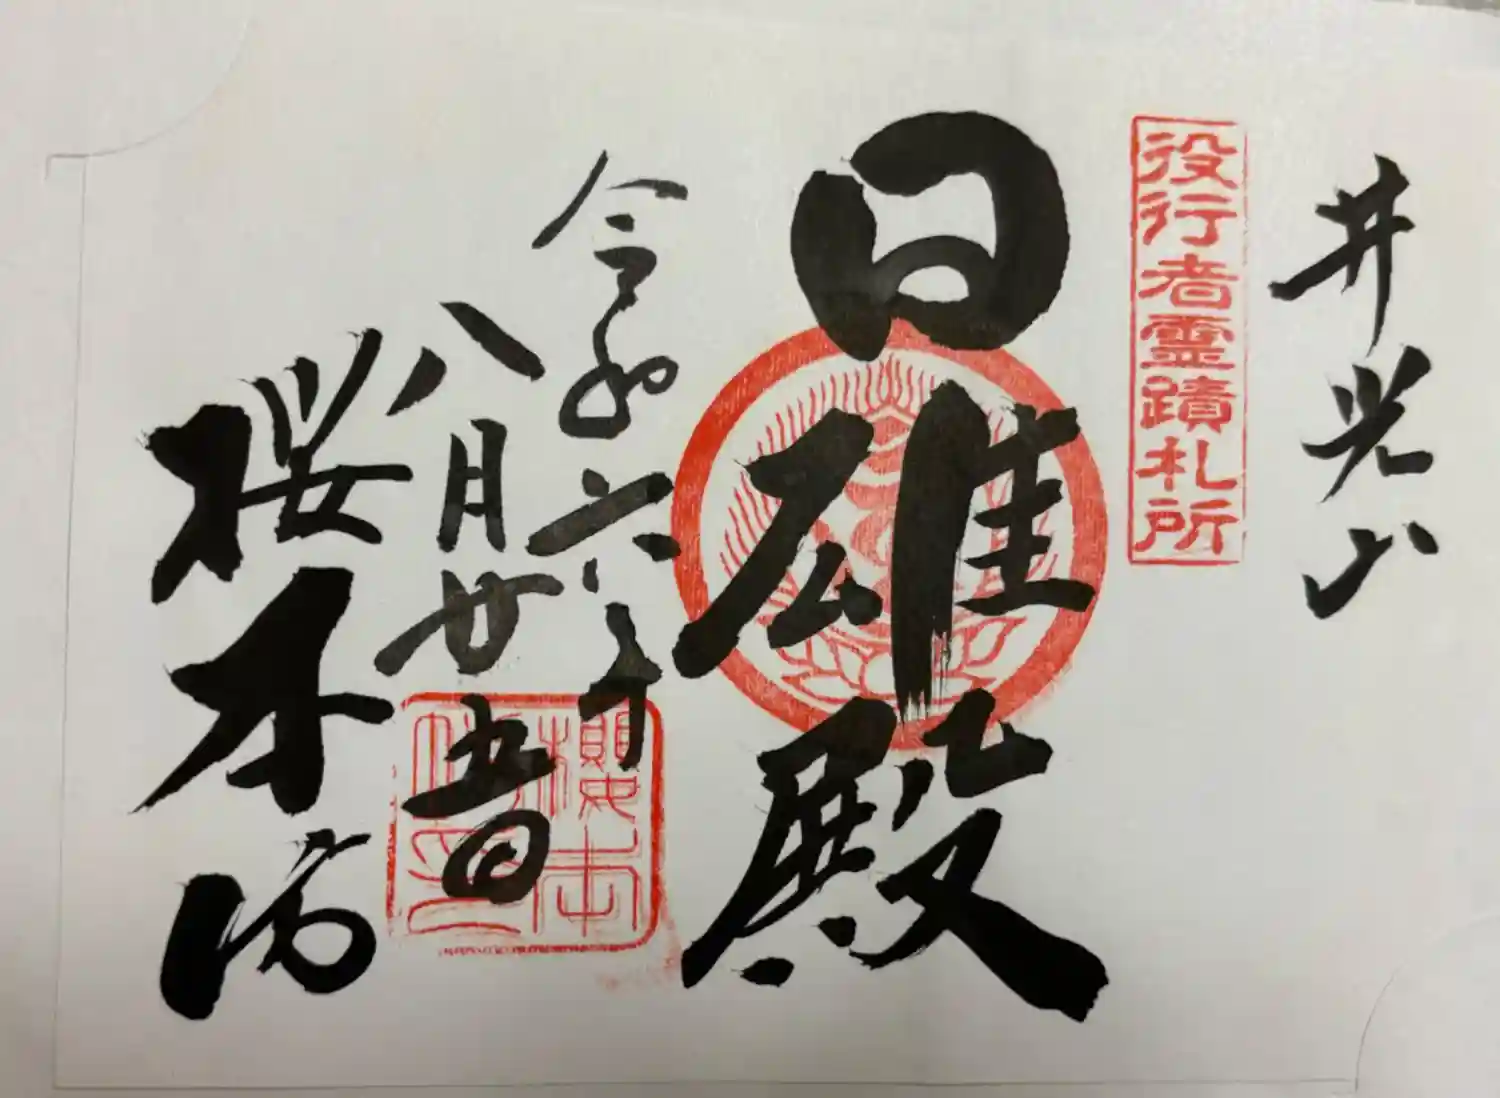 井光山
役行者霊蹟札所
日雄殿
令和六年
八月廿五日
櫻本坊
櫻本